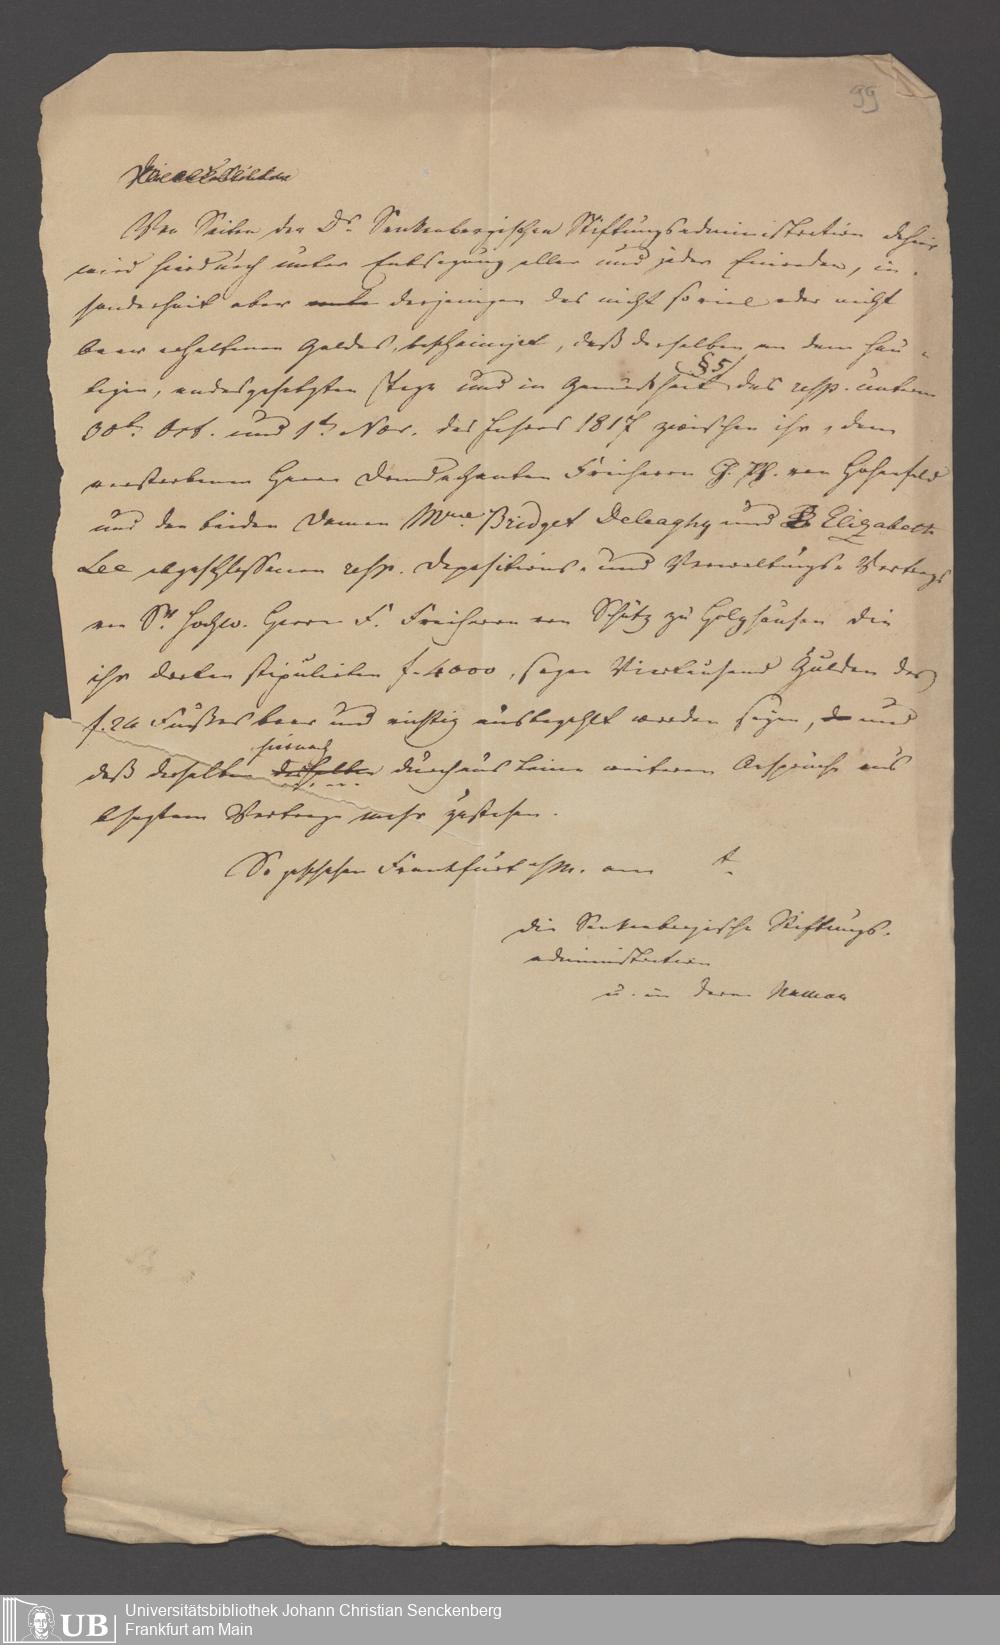 99
Von Seiten der Dr. Senkenbergischen Stiftungsadministration dahier
wird hierdurch unter Entsagung aller und jeder Einreden, in-
sonderheit aber derjenigen des nicht soviel oder nicht
baar erhaltenen Geldes, bescheiniget, daß derselben an dem heu-
tigen, endesgesetzten Tage und in Gemäsheit §5 des resp. unterm
30ten Oct. und 1ten Nov. des Jahres 1817 zwischen ihr, dem
verstorbenen Herrn Domdechanten Freiherrn von Hohenfeld
und den beiden Damen Mme Bridget Deleaghy und Elizabeth
Lee abgeschlossenen resp. Depositions- und Verwaltungs-Vertrags
von Sr Hochw. Herrn F. Freiherrn von Schütz zu Holzhausen die
ihr darin stipulirten f. 4000, sage Viertausend Gulden des
f. 24 Fußes baar und richtig ausbezahlt worden seyen, und
daß derselben hiernach durchaus keine weiteren Ansprüche aus
besagtem Vertrage mehr zustehen.
So geschehen Frankfurt a/M. am t.
Die Senkenbergische Stiftungs-
administration
u. in deren Namen
UB
Universitätsbibliothek Johann Christian Senckenberg
Frankfurt am Main